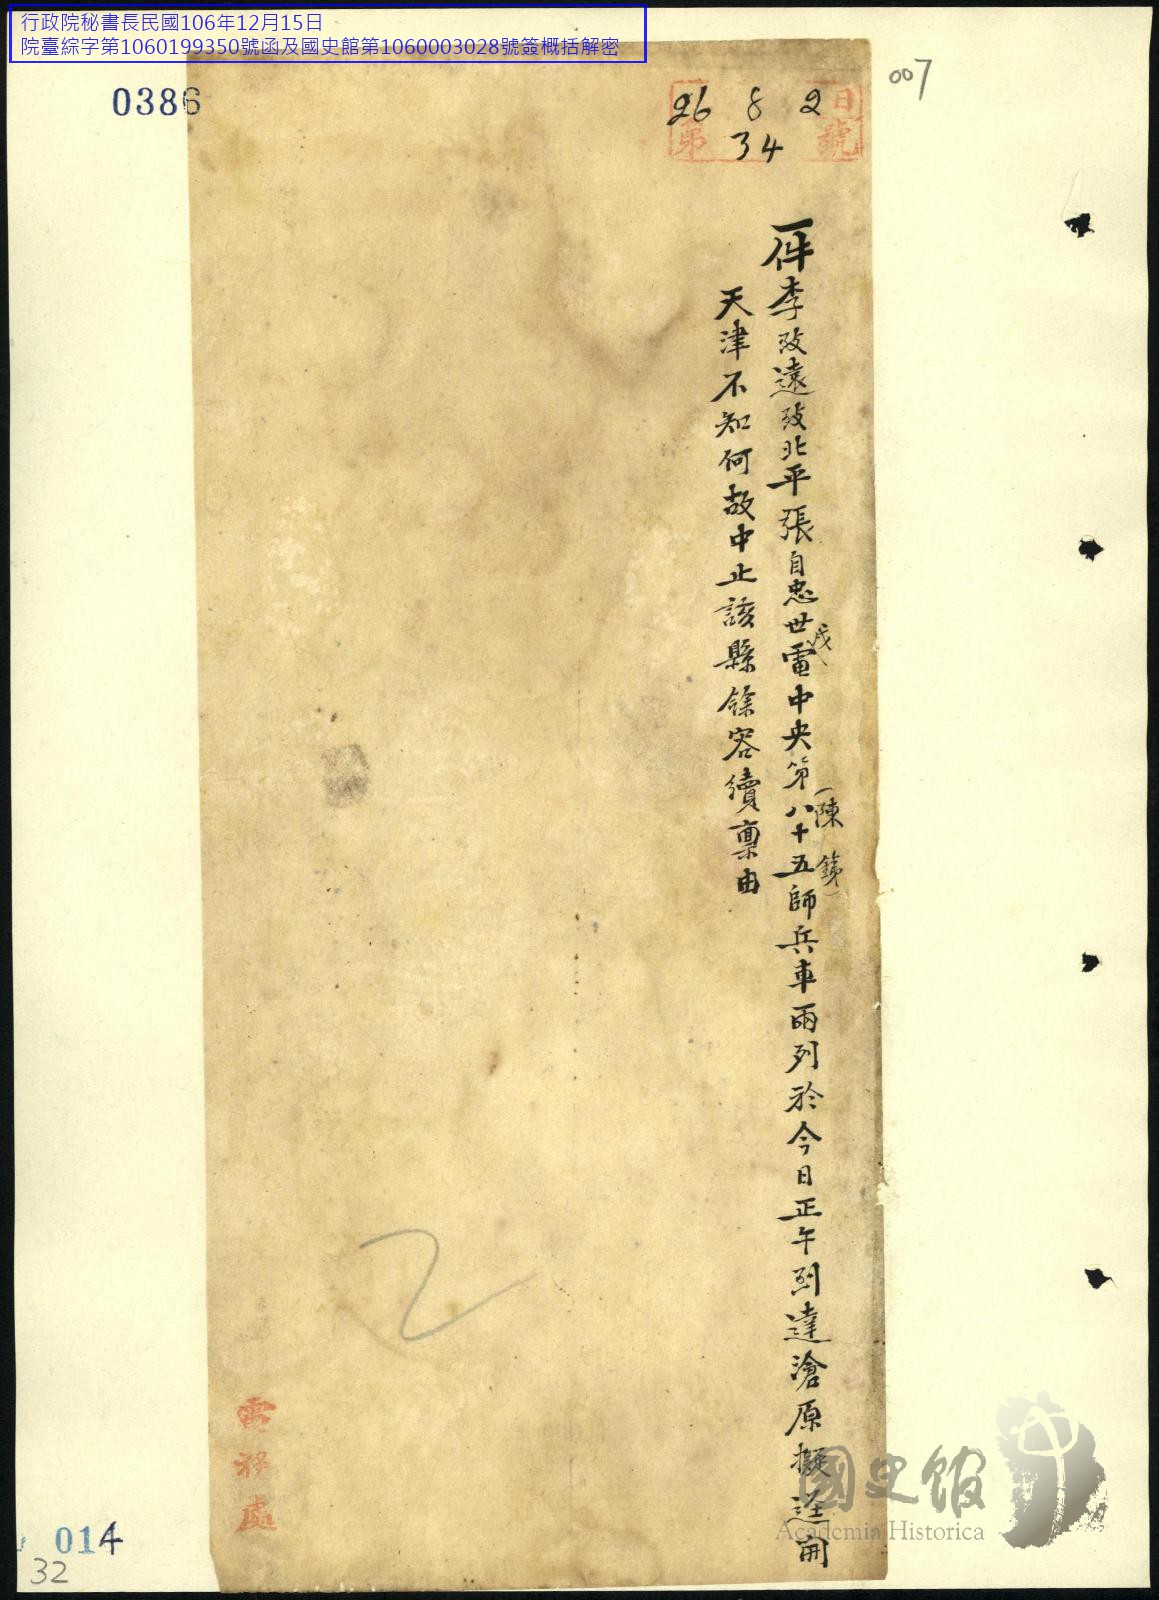 行政院秘書長民國106年12月15日
院臺綜字第1060199350號函及國史館第1060003028號簽概括解密
0386
007
26 8 2日
第 34 號
一件李致遠致北平張自忠世電中央第八十五師兵車兩列於今日正午到達滄原擬逕開
戌
(陳鐵)
天津不知何故中止該縣餘容續稟由
電務處
014
32
國史館
Academia Historica